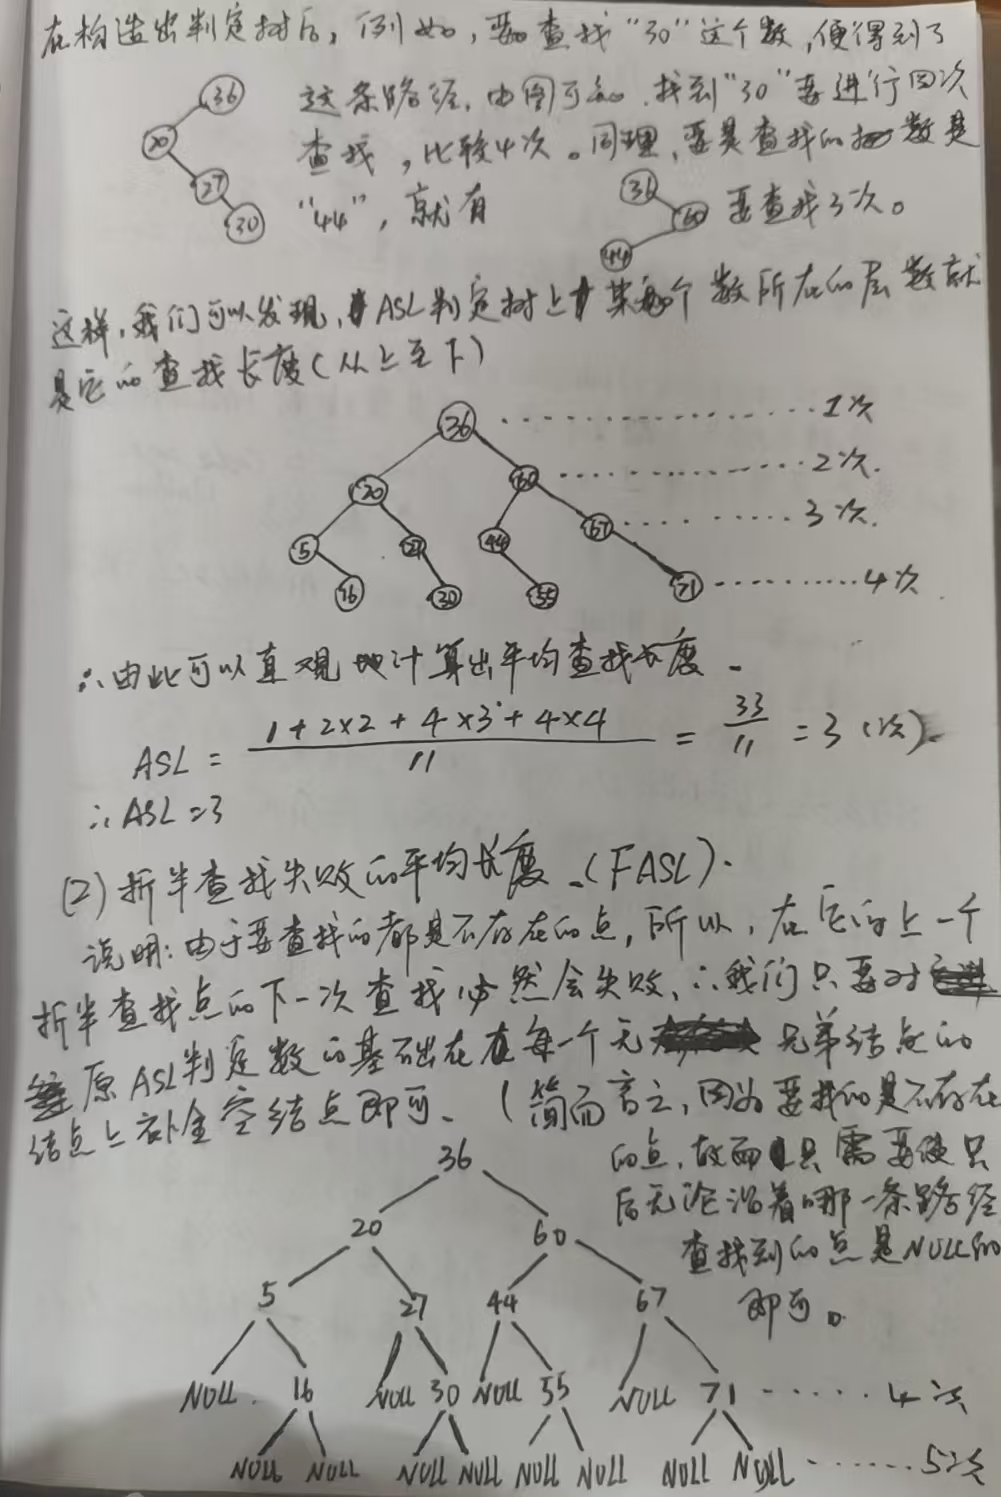 在构造出判定树后，例如，要查找“30”这个数，便得到了
36 这条路径，由图可知，找到“30”要进行四次
20 查找，比较4次。同理，要是查找的数是
27 36
30 “44”，就有 60 要查找3次。
44
这样，我们可以发现，ASL判定树上某个数所在的层数就
是它的查找长度（从上至下）
36 ············ 1次
20 60 ············ 2次.
5 27 44 67 ········ 3次.
16 30 55 71 ········ 4次
∴由此可以直观地计算出平均查找长度.
ASL = (1+2×2+4×3+4×4)/11 = 33/11 = 3（次）.
∴ASL=3
(2)折半查找失败的平均长度.(FASL).
说明：由于要查找的都是不存在的点，所以，在它的上一个
折半查找点的下一次查找必然会失败，∴我们只要对
原ASL判定数的基础在在每一个无兄弟结点的
结点上补全空结点即可.（简而言之，因为要找的是不存在
36 的点，故而只需要使只
20 60 后无论沿着哪一条路径
查找到的点是NULL的
5 27 44 67 即可。
NULL 16 NULL 30 NULL 55 NULL 71 ······ 4次
NULL NULL NULL NULL NULL NULL NULL NULL ······ 5次